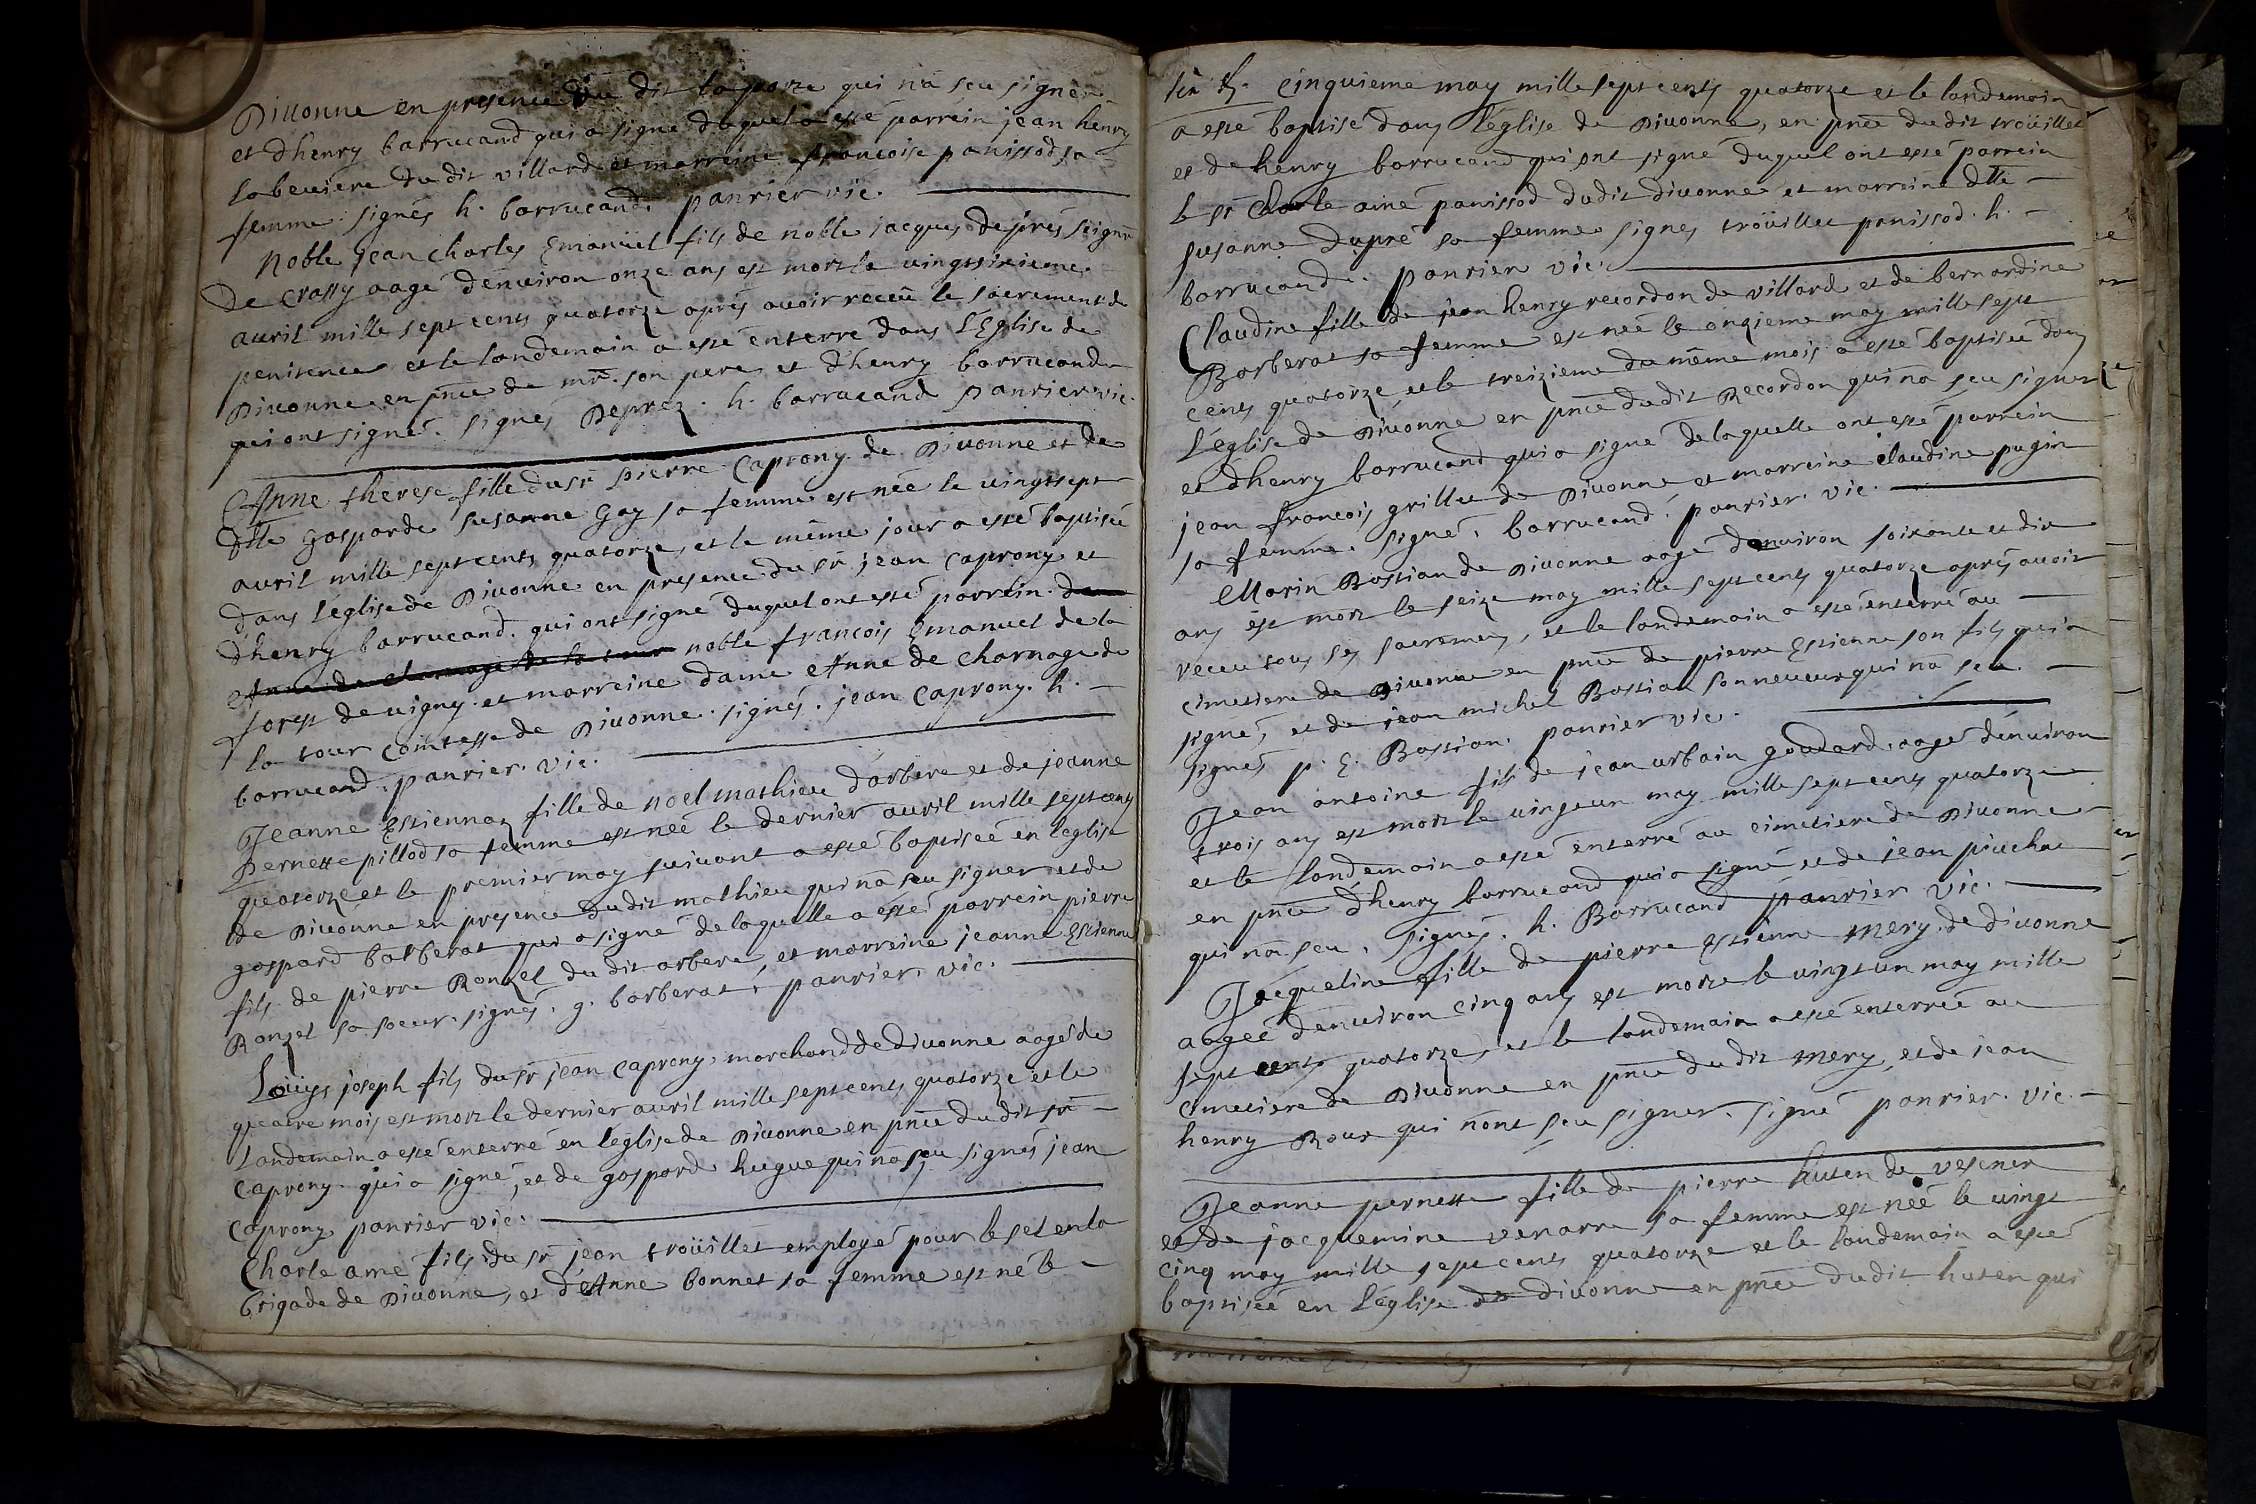 Diuonne en presence du dit laporte qui na sceu signer
et dhenry barrucand qui a signé duquel a esté parrein jean henry
labeuiere du dit villard et marreine francoise panissod sa
femme. signés h. barrucand. panrier vic.
Noble jean charles Emanüel fils de noble jacques deprés seignr
de Crassy aagé dénuiron onze ans est mort le uingtsixieme
auril mille sept cents quatorze aprés auoir receu le sacrement de
penitence et le landemain a esté enterré dans L'Eglise de
Diuonne en pnce de mr. son pere et d'henry barrucand
qui ont signé. signés Deprez. h. barrucand Panrier vic.
Anne therese fille du sr Pierre Caprony de Diuonne et de
dlle gasparde susanne Gay sa femme est née le uingtsept
auril mille sept cents quatorze, et le même jour a esté baptisée
dans l'église de Diuonne en presence du sr jean Caprony et
dhenry barrucand. qui ont signé duquel ont esté parrein
noble francois Emanuel de la
forest de uigny. et marreine dame Anne de Charnage de
la tour Comtesse de Diuonne. signés. jean Caprony. h.
barrucand. panrier. vic.
Jeanne Estiennaz fille de noël mathieu d'arbere et de jeanne
Pernette pillod sa femme est née le dernier auril mille sept cents
quatorze et le premier may suiuant a esté baptisée en l'église
de Diuonne en presence du dit mathieu qui na sceu signer et de
gaspard barberat qui a signé de laquelle a esté parrein pierre
fils de pierre Ronzel du dit arbere, et marreine jeanne Estienne
Ronzel sa soeur. signés. g. barberat, panrier. vic.
Loüys joseph fils du sr jean Caprony marchand de Diuonne aagé de
quatre mois est mort le dernier auril mille sept cents quatorze et le
landemain a esté enterré en l'église de Diuonne en pnce du dit sr
Caprony. qui a signé, et de gaspard hugue qui na sceu signés jean
Caprony panrier vic.
Charle amé fils du sr jean troüillet employé pour le sel en la
brigade de Diuonne, et d'Anne bonnet sa femme est né le
cinquieme may mille sept cents quatorze et le landemain
a esté baptisé dans l'église de Diuonne, en pnce dudit troüillet
et de henry barrucand qui ont signé duquel ont esté parrein
le sr Charle aimé panissod dudit diuonne et marreine dlle
susanne dupré sa femme signés troüillet panissod. h.
barrucand. panrier vic.
Claudine fille de jean henry recordon de villard et de bernardine
Barberat sa femme est née le onzieme may mille sept
cents quatorze et le treizieme du même mois a esté baptisée dans
l'église de Diuonne en pnce dudit Recordon qui na sceu signer
et dhenry barrucand qui a signé de laquelle ont esté parrein
jean francois grillet de Diuonne et marreine claudine pugin
sa femme. signé. barrucand. panrier. vic.
Marin Bastian de Diuonne aagé denuiron soixante et dix
ans est mort le seize may mille sept cents quatorze aprés auoir
receu tous ses sacremens, et le landemain a esté enterré au
cimetiere de Diuonne en pnce de pierre Estienne son fils qui a
signé, et de jean michel Bastian son neueu qui na sceu.
signés p. E. Bastian. panrier vic.
Jean antoine fils de jean urbain godard aagé dénuiron
trois ans est mort le uingtun may mille sept cents quatorze
et le landemain a esté enterré au cimetiere de Diuonne
en pnce d'henry barrucand qui a signé et de jean piuchat
qui na sceu. signés. h. Barrucand panrier vic.
Jacqueline fille de pierre Estienne Mery de diuonne
aagée denuiron cinq ans est morte le uingtun may mille
sept cents quatorze, et le landemain a esté enterrée au
Cimetiere de Diuonne en pnce du dit Mery, et de jean
henry Roux qui nont sceu signer. signé panrier. vic.
Jeanne pernette fille de pierre huten de vesenex
et de jacquemine venarre sa femme est née le uingt
cinq may mille sept cents quatorze et le landemain a esté
baptisée en l'église de diuonne en pnce dudit huten qui